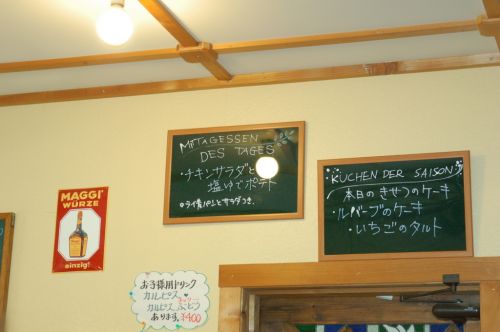 MAGGI®
WÜRZE
einzig!
MITTAGESSEN
DES TAGES
・チキンサラダと
塩ゆでポテト
パンとサラダつき
お子様用ドリンク
カルピス
カルピス ぶどう
あります。¥400
KUCHEN DER SAISON
本日のきせつのケーキ
・ルバーブのケーキ
・いちごのタルト